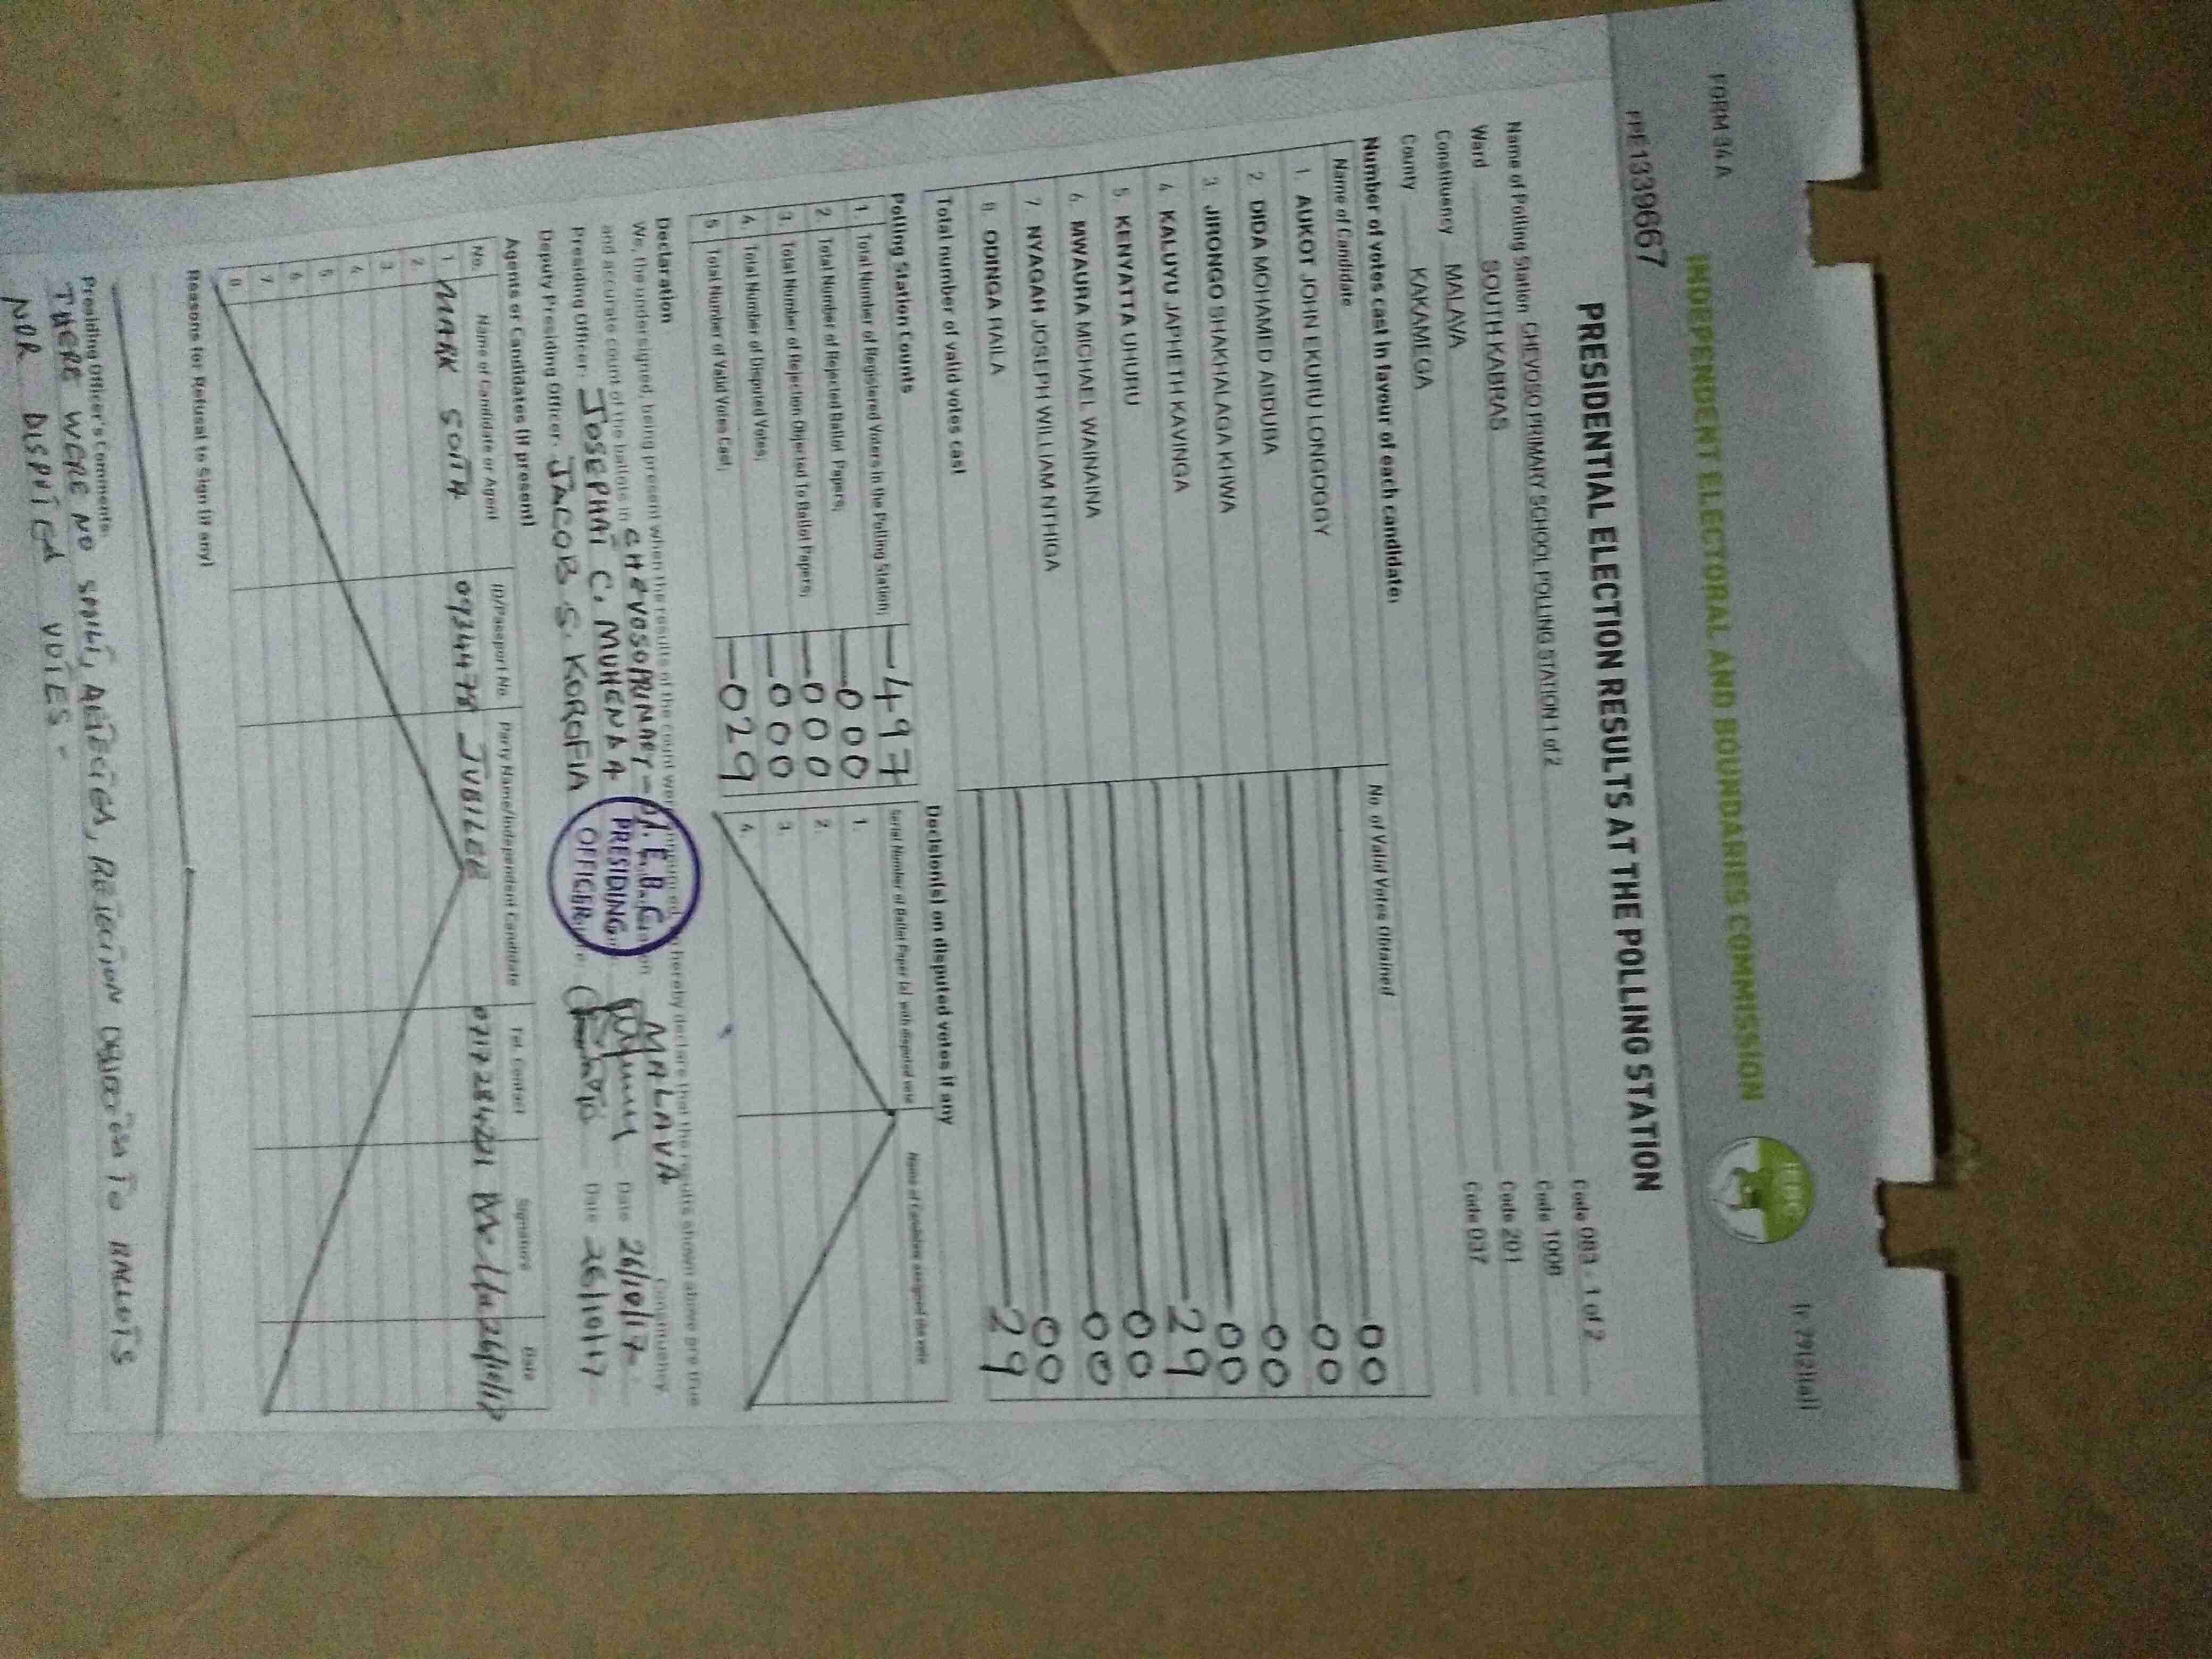 FORM 34 A
INDEPENDENT ELECTORAL AND BOUNDARIES COMMISSION
IEBC
PPE1339667
PRESIDENTIAL ELECTION RESULTS AT THE POLLING STATION
Name of Polling Station CHEVOSO PRIMARY SCHOOL POLLING STATION 1 of 2 Code 083 - 1 of 2
Ward SOUTH KABRAS Code 1008
Constituency MALAVA Code 201
County KAKAMEGA Code 037
Number of votes cast in favour of each candidate:
Name of Candidate No. of Valid Votes Obtained
1. AUKOT JOHN EKURU LONGOGGY 00
2. DIDA MOHAMED ABDUBA 00
3. JIRONGO SHAKHALAGA KHWA 00
4. KALUYU JAPHETH KAVINGA 00
5. KENYATTA UHURU 29
6. MWAURA MICHAEL WAINAINA 00
7. NYAGAH JOSEPH WILLIAM NTHIGA 00
8. ODINGA RAILA 00
Total number of valid votes cast 29
Polling Station Counts Decision(s) on disputed votes if any
Serial Number of Ballot Paper (s) with disputed vote Name of Candidate assigned the vote
1. Total Number of Registered Voters in the Polling Station; 497
2. Total Number of Rejected Ballot Papers; 000
3. Total Number of Rejection Objected To Ballot Papers; 000
4. Total Number of Disputed Votes; 000
5. Total Number of Valid Votes Cast; 029
1.
2.
3.
4.
Declaration
We, the undersigned, being present when the results of the count were hereby declare that the results shown above are true
and accurate count of the ballots in CHEVOSO PRIMARY - MALAVA Constituency
Presiding Officer: JOSEPHAT C. MUHENDA Date 26/10/17
Deputy Presiding Officer: JACOB S. KOROFIA Date 26/10/17
I.E.B.C
PRESIDING
OFFICER
Agents or Candidates (if present)
No. Name of Candidate or Agent ID/Passport No. Party Name/Independent Candidate Tel. Contact Signature Date
1. MARK SOITA JUBILEE 26/10/17
2.
3.
4.
5.
6.
7.
8.
Reasons for Refusal to Sign (if any)
Presiding Officer's Comments
THERE WERE NO REJECTION TO BALLOTS
NOR DISPUTED VOTES -